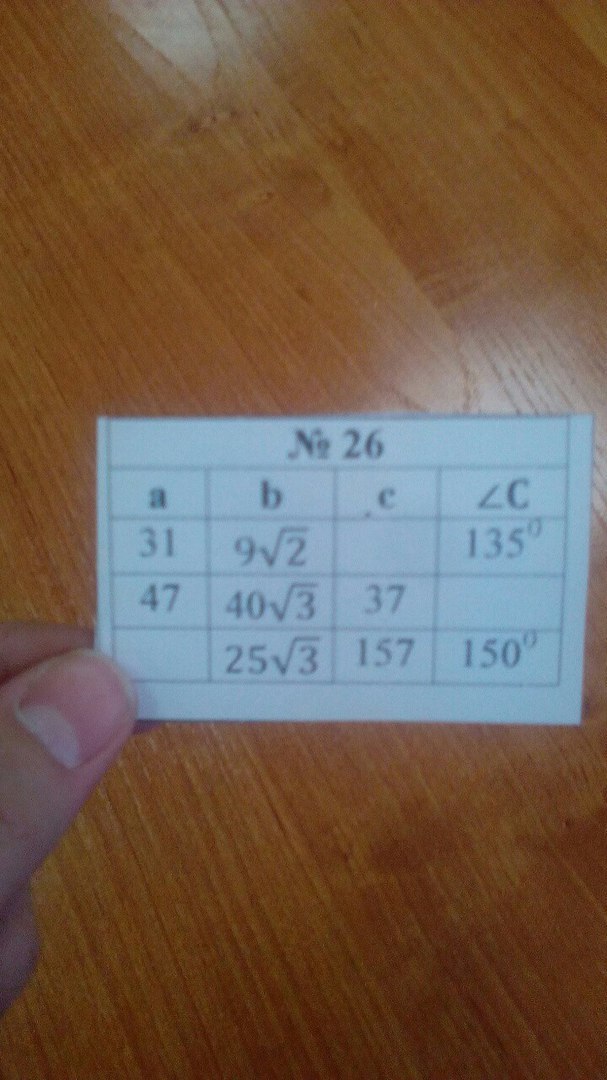 № 26
a b c ∠C
31 9√2 135⁰
47 40√3 37
25√3 157 150⁰